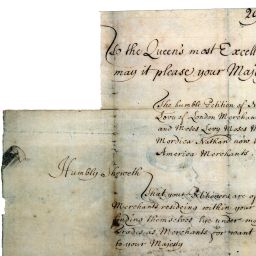 To the Queen's most Excell
may it please your Maj
The humble Petition of S
Levy of London Merchan
and Moses Levy Moses M
Mordica Nathan now
America Merchants
Humbly Sheweth
That your Petitioners are
Merchants resideing within your
finding themselves live under
Trade as Merchants for want
to your Majesty